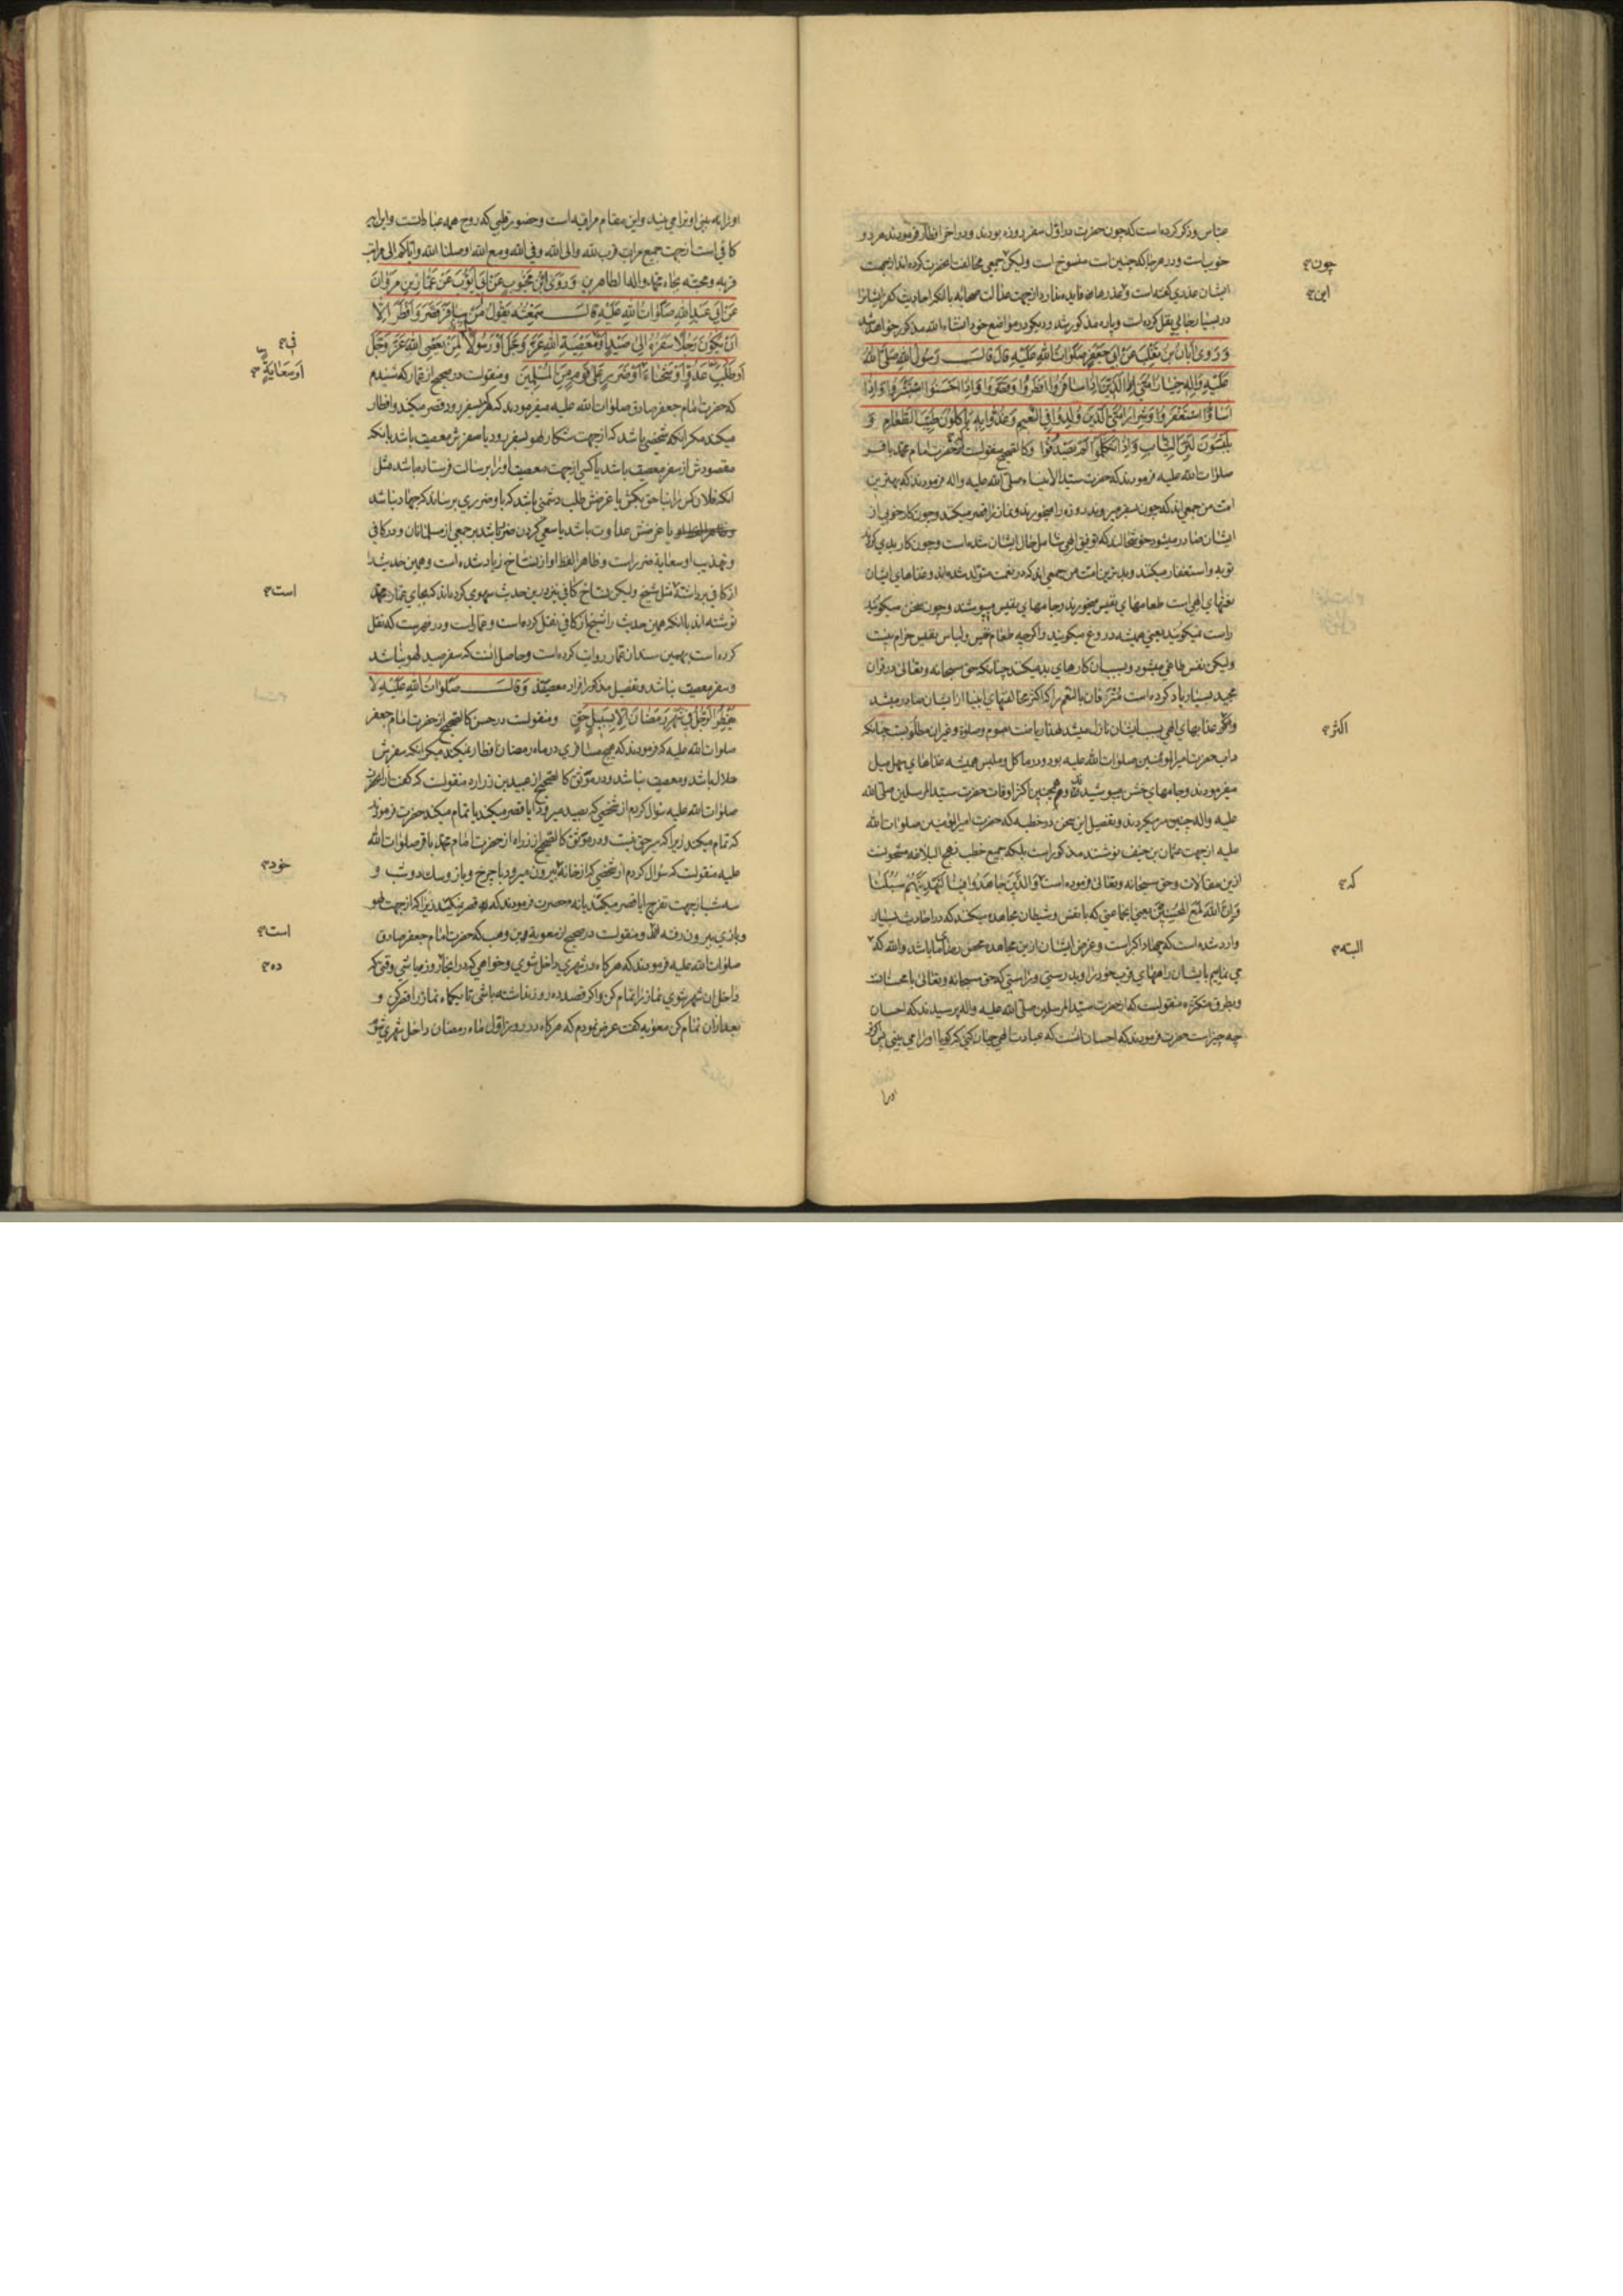 عباس و ذکر کرده است که چون حضرت در اول سفر روزه بودند و در اخر افطار فرمودند هر دو
خوبست و در هر جا که چنین است منسوخ است ولیکن جمعی مخالفت انحضرت کرده اند از جهت
ایشان عذری گفته است و عذرها فایده ندارد از جهت عدالت صحابه با انکه احادیث کفر ایشانرا
در بسیار جائی نقل کرده است و پاره مذکور شد و دیگر در مواضع خود انشاء الله مذکور خواهد شد
وَرَوىٰ اَبَانُ بْنُ تَغْلِبَ عَنْ اَبِي جَعْفَرٍ صَلَوَاتُ اللهِ عَلَيْهِ قَالَ قَالَ رَسُولُ اللهِ صَلَّى اللهُ
عَلَيْهِ وَاٰلِهِ خِيَارُ اُمَّتِي الَّذِينَ اِذَا سَافَرُوا اَفْطَرُوا وَقَصَّرُوا وَاِذَا اَحْسَنُوا اسْتَبْشَرُوا وَاِذَا
اَسَاؤُا اسْتَغْفَرُوا وَشِرَارُ اُمَّتِي الَّذِينَ وُلِدُوا فِي النَّعِيمِ وَغُذُّوا بِهِ يَأْكُلُونَ طَيِّبَ الطَّعَامِ وَ
يَلْبَسُونَ لَيِّنَ الثِّيَابِ وَاِذَا تَكَلَّمُوا لَمْ يَصْدُقُوا و کالصحیح منقولست از حضرت امام محمد باقر
صلوات الله علیه فرمودند که حضرت سید الانبیاء صلی الله علیه واله فرمودند که بهترین
امت من جمعی اند که چون بسفر میروند روزه را میخورند و نماز را قصر میکنند و چون کار خوبی از
ایشان صادر میشود خوشحالند که توفیق الهی شامل حال ایشان شده است و چون کار بدی کردند
توبه و استغفار میکنند و بدترین امت من جمعی اند که در نعمت متولد شده اند و غذاهای ایشان
نعمتهای الهی است طعامهای نفیس میخورند و جامهای نفیس میپوشند و چون سخن میگویند
راست نمیگویند یعنی همیشه دروغ میگویند و اگرچه طعام نفیس و لباس نفیس حرام نیست
ولیکن نفس طاغی میشود و بسبب ان کارهای بد میکند چنانکه حق سبحانه وتعالی در قران
مجید بسیار یاد کرده است مترفان بالنعم را که اکثر مخالفتهای انبیا از ایشان صادر میشد
و اکثر عذابهای الهی بسبب ایشان نازل میشد لهذا ریاضت بصوم و صلوة و غیر ان مطلوبست چنانکه
داب حضرت امیر المؤمنین صلوات الله علیه بود و در ماکل و ملبس همیشه غذاهای سهل میل
میفرمودند و جامهای خشن میپوشیدند و همچنین اکثر اوقات حضرت سید المرسلین صلی الله
علیه واله چنین سر میکردند و تفصیل این سخن در خطبه که حضرت امیر المؤمنین صلوات الله
علیه از جهت عثمان بن حنیف نوشتند مذکور است بلکه جمیع خطب نهج البلاغه مشحونست
ازین مقالات و حق سبحانه وتعالی فرموده است وَالَّذِينَ جَاهَدُوا فِينَا لَنَهْدِيَنَّهُمْ سُبُلَنَا
وَاِنَّ اللهَ لَمَعَ الْمُحْسِنِينَ یعنی انجماعتی که با نفس و شیطان مجاهده میکنند که در احادیث بسیار
وارد شده است که جهاد اکبر است و غرض ایشان ازین مجاهده محض رضای ما باشد والله که
می نماییم بایشان راههای قرب خود را و بدرستی و راستی که حق سبحانه وتعالی با محسنانست
و بطرق متکثره منقولست که از حضرت سید المرسلین صلی الله علیه واله پرسیدند که احسان
چه چیز است حضرت فرمودند که احسان انست که عبادت الهی چنان کنی که گویا او را می بینی پس اگر
اورا
چون
این
اکثر
که
البته
او را نه بینی او ترا می بیند و این مقام مراقبه است و حضور قلبی که روح همه عباداتست و این ایه
کافی است از جهت جمیع مراتب قرب لله والی الله وفی الله ومع الله اوصلنا الله وایاکم الی مراتب
قربه ومحبته بجاه محمد واله الطاهرین وَرَوَى ابْنُ مَحْبُوبٍ عَنْ اَبِي اَيُّوبَ عَنْ عَمَّارِ بْنِ مَرْوَانَ
عَنْ اَبِي عَبْدِ اللهِ صَلَوَاتُ اللهِ عَلَيْهِ قَالَ سَمِعْتُهُ يَقُولُ مَنْ سَافَرَ قَصَّرَ وَاَفْطَرَ اِلَّا
اَنْ يَكُونَ رَجُلًا سَفَرُهُ اِلىٰ صَيْدٍ اَوْ مَعْصِيَةِ اللهِ عَزَّ وَجَلَّ اَوْ رَسُولًا لِمَنْ يَعْصِي اللهَ عَزَّ وَجَلَّ
اَوْ طَلَبِ عَدُوٍّ اَوْ شَحْنَاءَ اَوْ ضَرَرٍ عَلىٰ قَوْمٍ مِنَ الْمُسْلِمِينَ و منقولست در صحیح از عمار که شنیدم
که حضرت امام جعفر صادق صلوات الله علیه میفرمودند که هر که بسفر رود قصر میکند و افطار
میکند مگر انکه شخصی باشد که از جهت شکار لهو بسفر رود یا سفرش معصیت باشد یا انکه
مقصودش از سفر معصیت باشد یا کسی از جهت معصیت او را برسالت فرستاده باشد مثل
انکه فلان کس را بناحق بکش یا غرضش طلب دشمنی باشد که باو ضرری برساند که جهاد نباشد
یا غرضش عداوت باشد یا سعی کردن ضرر باشد بر جمعی از مسلمانان و در کافی
و تهذیب او سعایة ضرر است و ظاهرا لفظ او از نساخ زیاد شده است و همین حدیث را
از کافی برداشته مثل شیخ ولیکن نساخ کافی نیز درین حدیث سهوی کرده اند که بجای عمار محمد
نوشته اند با انکه همین حدیث را شیخ از کافی نقل کرده است و عمار است و در فهرست که نقل
کرده است بهمین سند از عمار روایت کرده است و حاصل انست که سفر صید لهو نباشد
و سفر معصیت نباشد و تفصیل مذکور افراد معصیتند وَقَالَ صَلَوَاتُ اللهِ عَلَيْهِ لَا
يُفْطِرُ الرَّجُلُ فِي شَهْرِ رَمَضَانَ اِلَّا بِسَبِيلِ حَقٍّ و منقولست در حسن کالصحیح از حضرت امام جعفر
صلوات الله علیه که فرمودند که هیچ مسافری در ماه رمضان افطار نمیکند مگر انکه سفرش
حلال باشد و معصیت نباشد و در موثق کالصحیح از عبید بن زراره منقولست که گفت از انحضرت
صلوات الله علیه سؤال کردم از شخصی که بصید میرود ایا قصر میکند یا تمام میکند حضرت فرمودند
که تمام میکند زیرا که سیر حق نیست و در موثق کالصحیح از زراره از حضرت امام محمد باقر صلوات الله
علیه منقولست که سؤال کردم از شخصی که از خانه بیرون میرود با چرخ و باز و سک دو شب و
سه شب از جهت تفرج ایا قصر میکند یا نه حضرت فرمودند که قصر نمیکند زیرا که از جهت لهو
و بازی بیرون رفته و منقولست در صحیح از معویة بن وهب که حضرت امام جعفر صادق
صلوات الله علیه فرمودند که هرگاه در شهری داخل شوی و خواهی که در انجا روز باشی وقتی که
داخل ان شهر شوی نماز را تمام کن و اگر قصد ده روز نداشته باشی تا یکماه نماز را قصر کن و
بعد از ان تمام کن معویه گفت عرض نمودم که هرگاه در روز اول ماه رمضان داخل شهری شوم
في
اَوْ سِعَايَةٍ
است
خود
است
ده